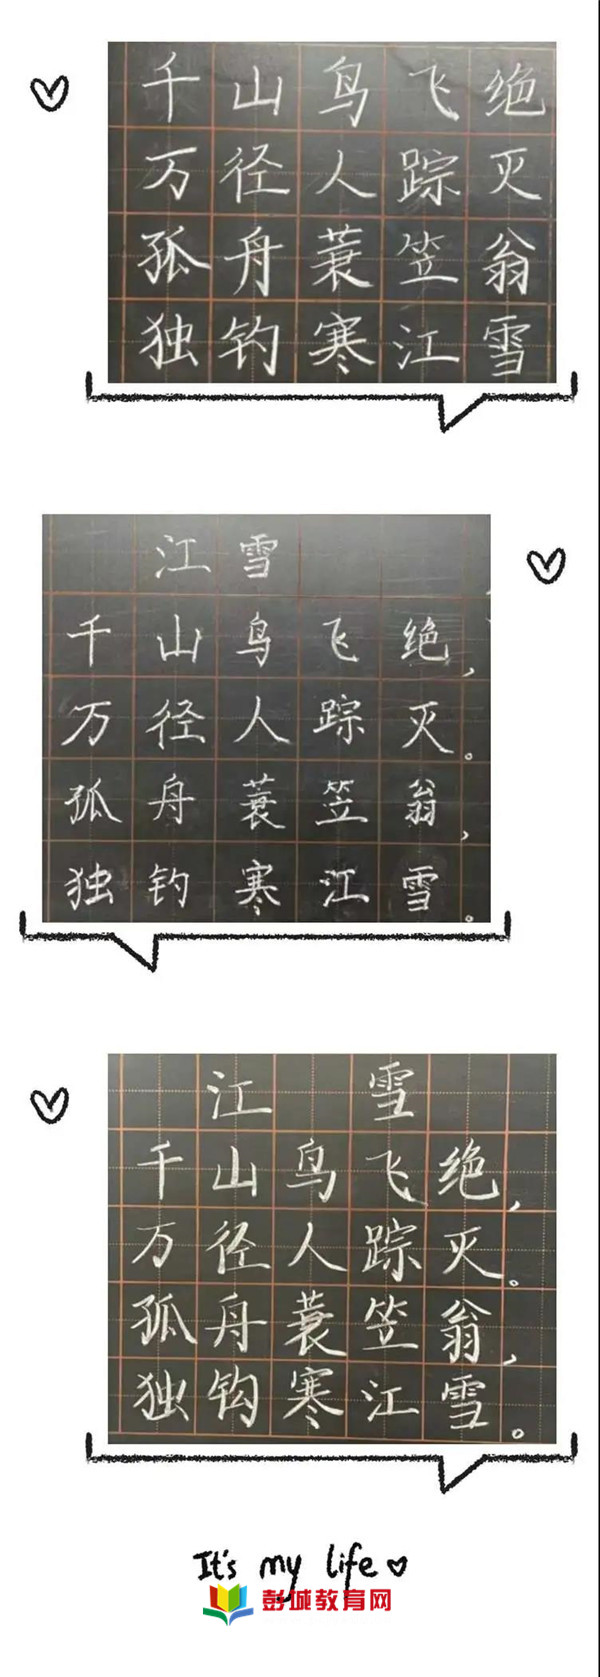 千山鸟飞绝
万径人踪灭
孤舟蓑笠翁
独钓寒江雪
江雪
千山鸟飞绝，
万径人踪灭。
孤舟蓑笠翁，
独钓寒江雪。
江雪
千山鸟飞绝，
万径人踪灭。
孤舟蓑笠翁，
独钩寒江雪。
It's my life
彭城教育网